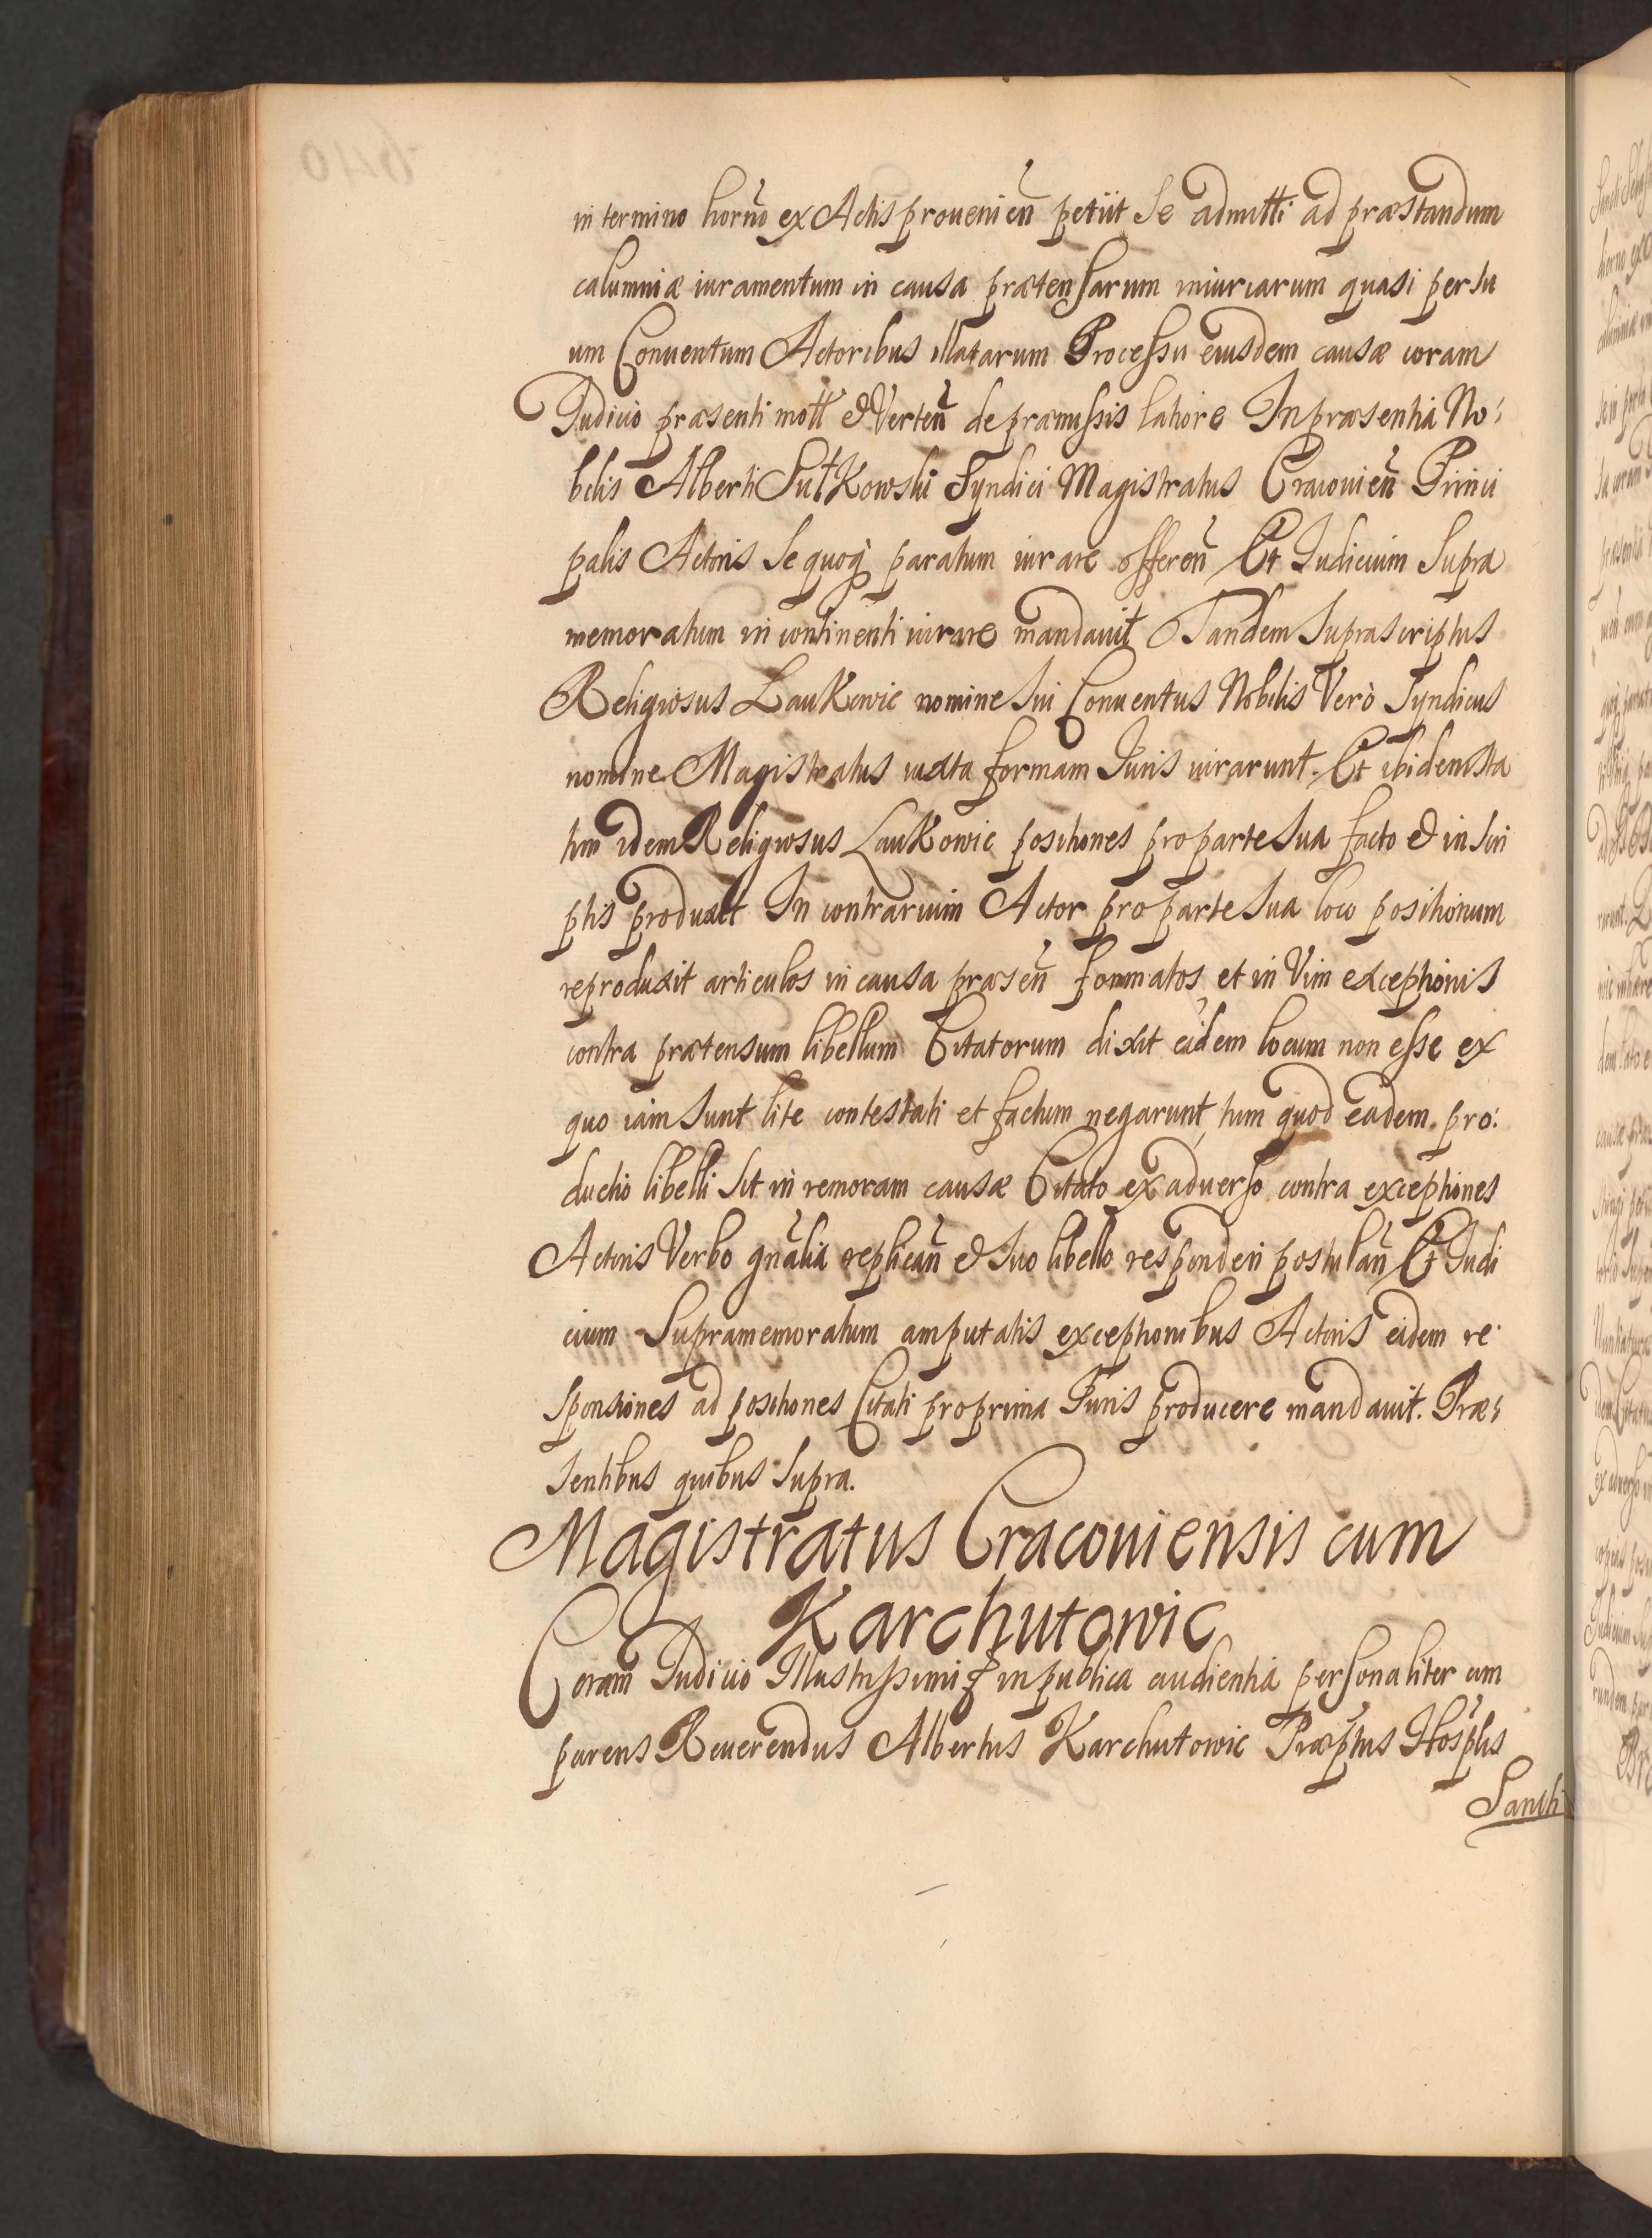 in termino horno ex Actis provenien petiit se admitti ad præstandum
calumniæ iuramentum in causa prætensarum iniuriarum quasi per su
um Conuentum Actoribus illatarum Processu eiusdem causæ coram
Iudicio præsenti mott & Verten de præmissis latiore In præsentia No:
bilis Alberti Sutkowski Syndici Magistratus Cracouien Princi
palis Actoris se quoq paratum iurare offeren Et Iudicium supra
memoratum in continenti iurare mandauit Tandem suprascriptus
Religiosus Laukowic nomine sui Conuentus Nobilis Verò Syndicus
nomine Magistratus iuxta formam Iuris iurarunt. Et ibidem sta
tim idem Religiosus Laukowic positiones pro parte sua facto & in scri
ptis produxit In contrarium Actor pro parte sua loco positionum
reproduxit articulos in causa præsen formatos et in Vim exceptionis
contra prætensum libellum Citatorum dixit eidem locum non esse ex
quo iam sunt lite contestati et factum negarunt, tum quod eadem pro:
ductio libelli sit in remoram causæ Citato ex aduerso contra exceptiones
Actoris Verbo gnalia replican & suo libello responderi postulan Et Iudi
cium Supramemoratum amputatis exceptionibus Actoris eidem re
sponsiones ad positiones Citati pro prima Iuris producere mandauit. Præ:
sentibus quibus supra.
Magistratus Cracouiensis cum
Karchutowic
Coram Iudicio Illustrissimi in publica audientia personaliter com
parens Reuerendus Albertus Karchutowic Præptus Hosplis
Sancti